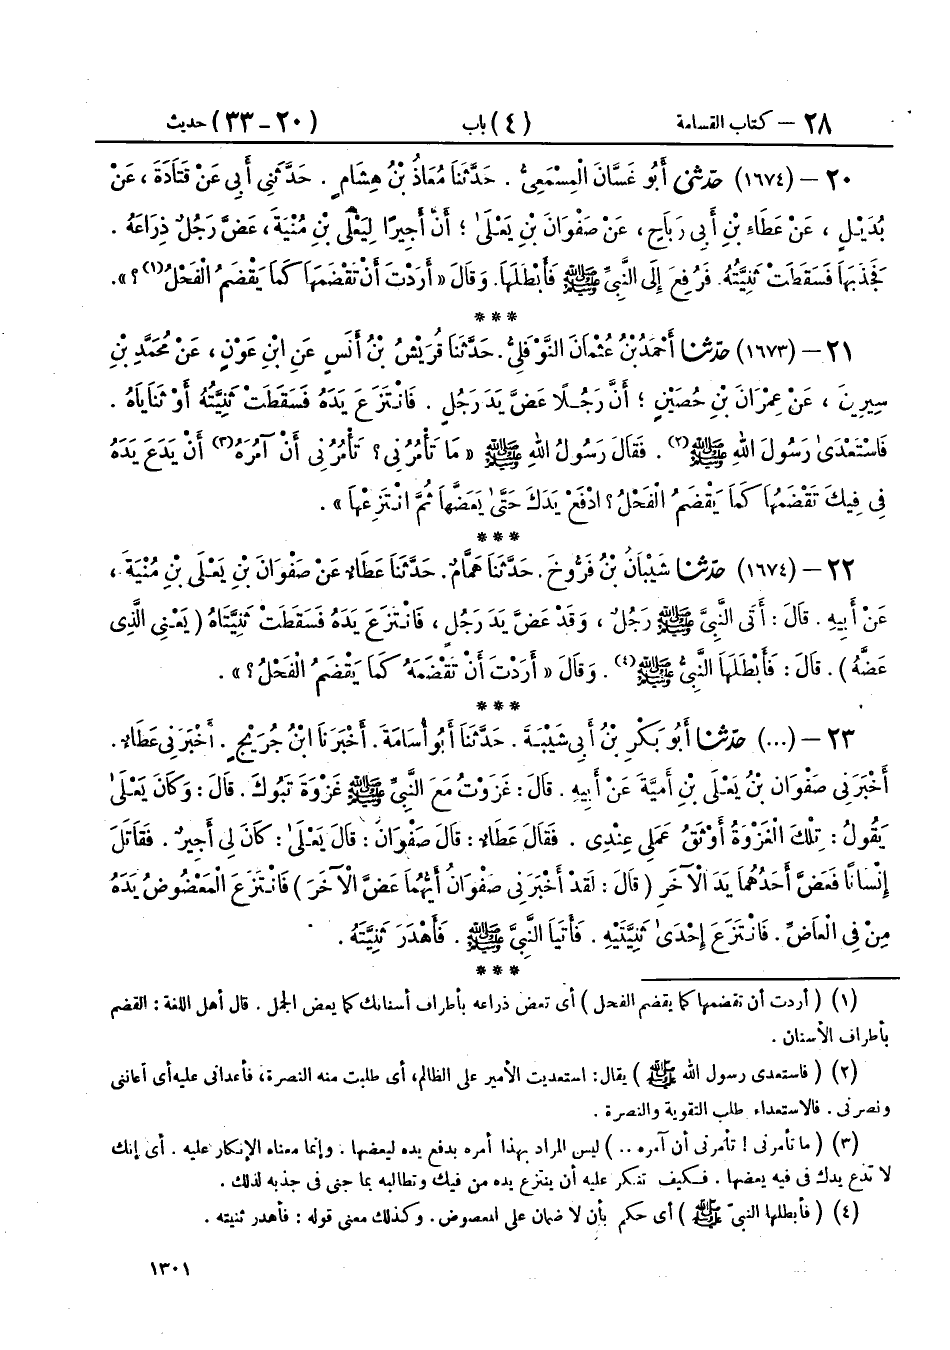 ٢٨ – كتاب القسامة (٤) باب (٢٠ – ٣٣) حديث
٢٠ – (١٦٧٤) حَدَّثَنِي أَبُو غَسَّانَ الْمِسْمَعِيُّ . حَدَّثَنَا مُعَاذُ بْنُ هِشَامٍ . حَدَّثَنِي أَبِي عَنْ قَتَادَةَ ، عَنْ
بُدَيْلٍ ، عَنْ عَطَاءِ بْنِ أَبِي رَبَاحٍ ، عَنْ صَفْوَانَ بْنِ يَعْلَىٰ ؛ أَنَّ أَجِيرًا لِيَعْلَىٰ بْنِ مُنْيَةَ ، عَضَّ رَجُلٌ ذِرَاعَهُ .
فَجَذَبَهَا فَسَقَطَتْ ثَنِيَّتُهُ . فَرُفِعَ إِلَى النَّبِيِّ ﷺ فَأَبْطَلَهَا. وَقَالَ « أَرَدْتَ أَنْ تَقْضَمَهَا كَمَا يَقْضَمُ الْفَحْلُ(١) ؟ » .
***
٢١ – (١٦٧٣) حَدَّثَنَا أَحْمَدُ بْنُ عُثْمَانَ النَّوْفَلِيُّ . حَدَّثَنَا قُرَيْشُ بْنُ أَنَسٍ عَنِ ابْنِ عَوْنٍ ، عَنْ مُحَمَّدِ بْنِ
سِيرِينَ ، عَنْ عِمْرَانَ بْنِ حُصَيْنٍ ؛ أَنَّ رَجُلًا عَضَّ يَدَ رَجُلٍ . فَانْتَزَعَ يَدَهُ فَسَقَطَتْ ثَنِيَّتُهُ أَوْ ثَنَايَاهُ .
فَاسْتَعْدَىٰ رَسُولَ اللهِ ﷺ(٢) . فَقَالَ رَسُولُ اللهِ ﷺ « مَا تَأْمُرُنِي ؟ تَأْمُرُنِي أَنْ آمُرَهُ(٣) أَنْ يَدَعَ يَدَهُ
فِي فِيكَ تَقْضَمُهَا كَمَا يَقْضَمُ الْفَحْلُ ؟ ادْفَعْ يَدَكَ حَتَّىٰ يَعَضَّهَا ثُمَّ انْتَزِعْهَا » .
***
٢٢ – (١٦٧٤) حَدَّثَنَا شَيْبَانُ بْنُ فَرُّوخَ . حَدَّثَنَا هَمَّامٌ . حَدَّثَنَا عَطَاءٌ عَنْ صَفْوَانَ بْنِ يَعْلَى بْنِ مُنْيَةَ ،
عَنْ أَبِيهِ . قَالَ : أَتَى النَّبِيَّ ﷺ رَجُلٌ ، وَقَدْ عَضَّ يَدَ رَجُلٍ ، فَانْتَزَعَ يَدَهُ فَسَقَطَتْ ثَنِيَّتَاهُ ( يَعْنِي الَّذِي
عَضَّهُ ) . قَالَ : فَأَبْطَلَهَا النَّبِيُّ ﷺ(٤) . وَقَالَ « أَرَدْتَ أَنْ تَقْضَمَهُ كَمَا يَقْضَمُ الْفَحْلُ ؟ » .
***
٢٣ – (...) حَدَّثَنَا أَبُو بَكْرِ بْنُ أَبِي شَيْبَةَ . حَدَّثَنَا أَبُو أُسَامَةَ . أَخْبَرَنَا ابْنُ جُرَيْجٍ . أَخْبَرَنِي عَطَاءٌ .
أَخْبَرَنِي صَفْوَانُ بْنُ يَعْلَى بْنِ أُمَيَّةَ عَنْ أَبِيهِ . قَالَ : غَزَوْتُ مَعَ النَّبِيِّ ﷺ غَزْوَةَ تَبُوكَ . قَالَ : وَكَانَ يَعْلَىٰ
يَقُولُ : تِلْكَ الْغَزْوَةُ أَوْثَقُ عَمَلِي عِنْدِي . فَقَالَ عَطَاءٌ : قَالَ صَفْوَانُ : قَالَ يَعْلَىٰ : كَانَ لِي أَجِيرٌ . فَقَاتَلَ
إِنْسَانًا فَعَضَّ أَحَدُهُمَا يَدَ الْآخَرِ ( قَالَ : لَقَدْ أَخْبَرَنِي صَفْوَانُ أَيُّهُمَا عَضَّ الْآخَرَ ) فَانْتَزَعَ الْمَعْضُوضُ يَدَهُ
مِنْ فِي الْعَاضِّ . فَانْتَزَعَ إِحْدَىٰ ثَنِيَّتَيْهِ . فَأَتَيَا النَّبِيَّ ﷺ . فَأَهْدَرَ ثَنِيَّتَهُ .
***
(١) ( أردت أن تقضمها كما يقضم الفحل ) أى تعض ذراعه بأطراف أسنانك كما يعض الجمل . قال أهل اللغة : القضم
بأطراف الأسنان .
(٢) ( فاستعدى رسول الله ﷺ ) يقال: استعديت الأمير على الظالم، أى طلبت منه النصرة، فأعدانى عليه أى أعاننى
ونصرنى . فالاستعداء طلب التقوية والنصرة .
(٣) ( ما تأمرنى ! تأمرنى أن آمره .. ) ليس المراد بهذا أمره بدفع يده ليعضها . وإنما معناه الإنكار عليه . أى إنك
لا تدع يدك فى فيه يعضها . فكيف تنكر عليه أن ينتزع يده من فيك وتطالبه بما جنى فى جذبه لذلك .
(٤) ( فأبطلها النبىّ ﷺ ) أى حكم بأن لا ضمان على المعضوض . وكذلك معنى قوله : فأهدر ثنيته .
١٣٠١